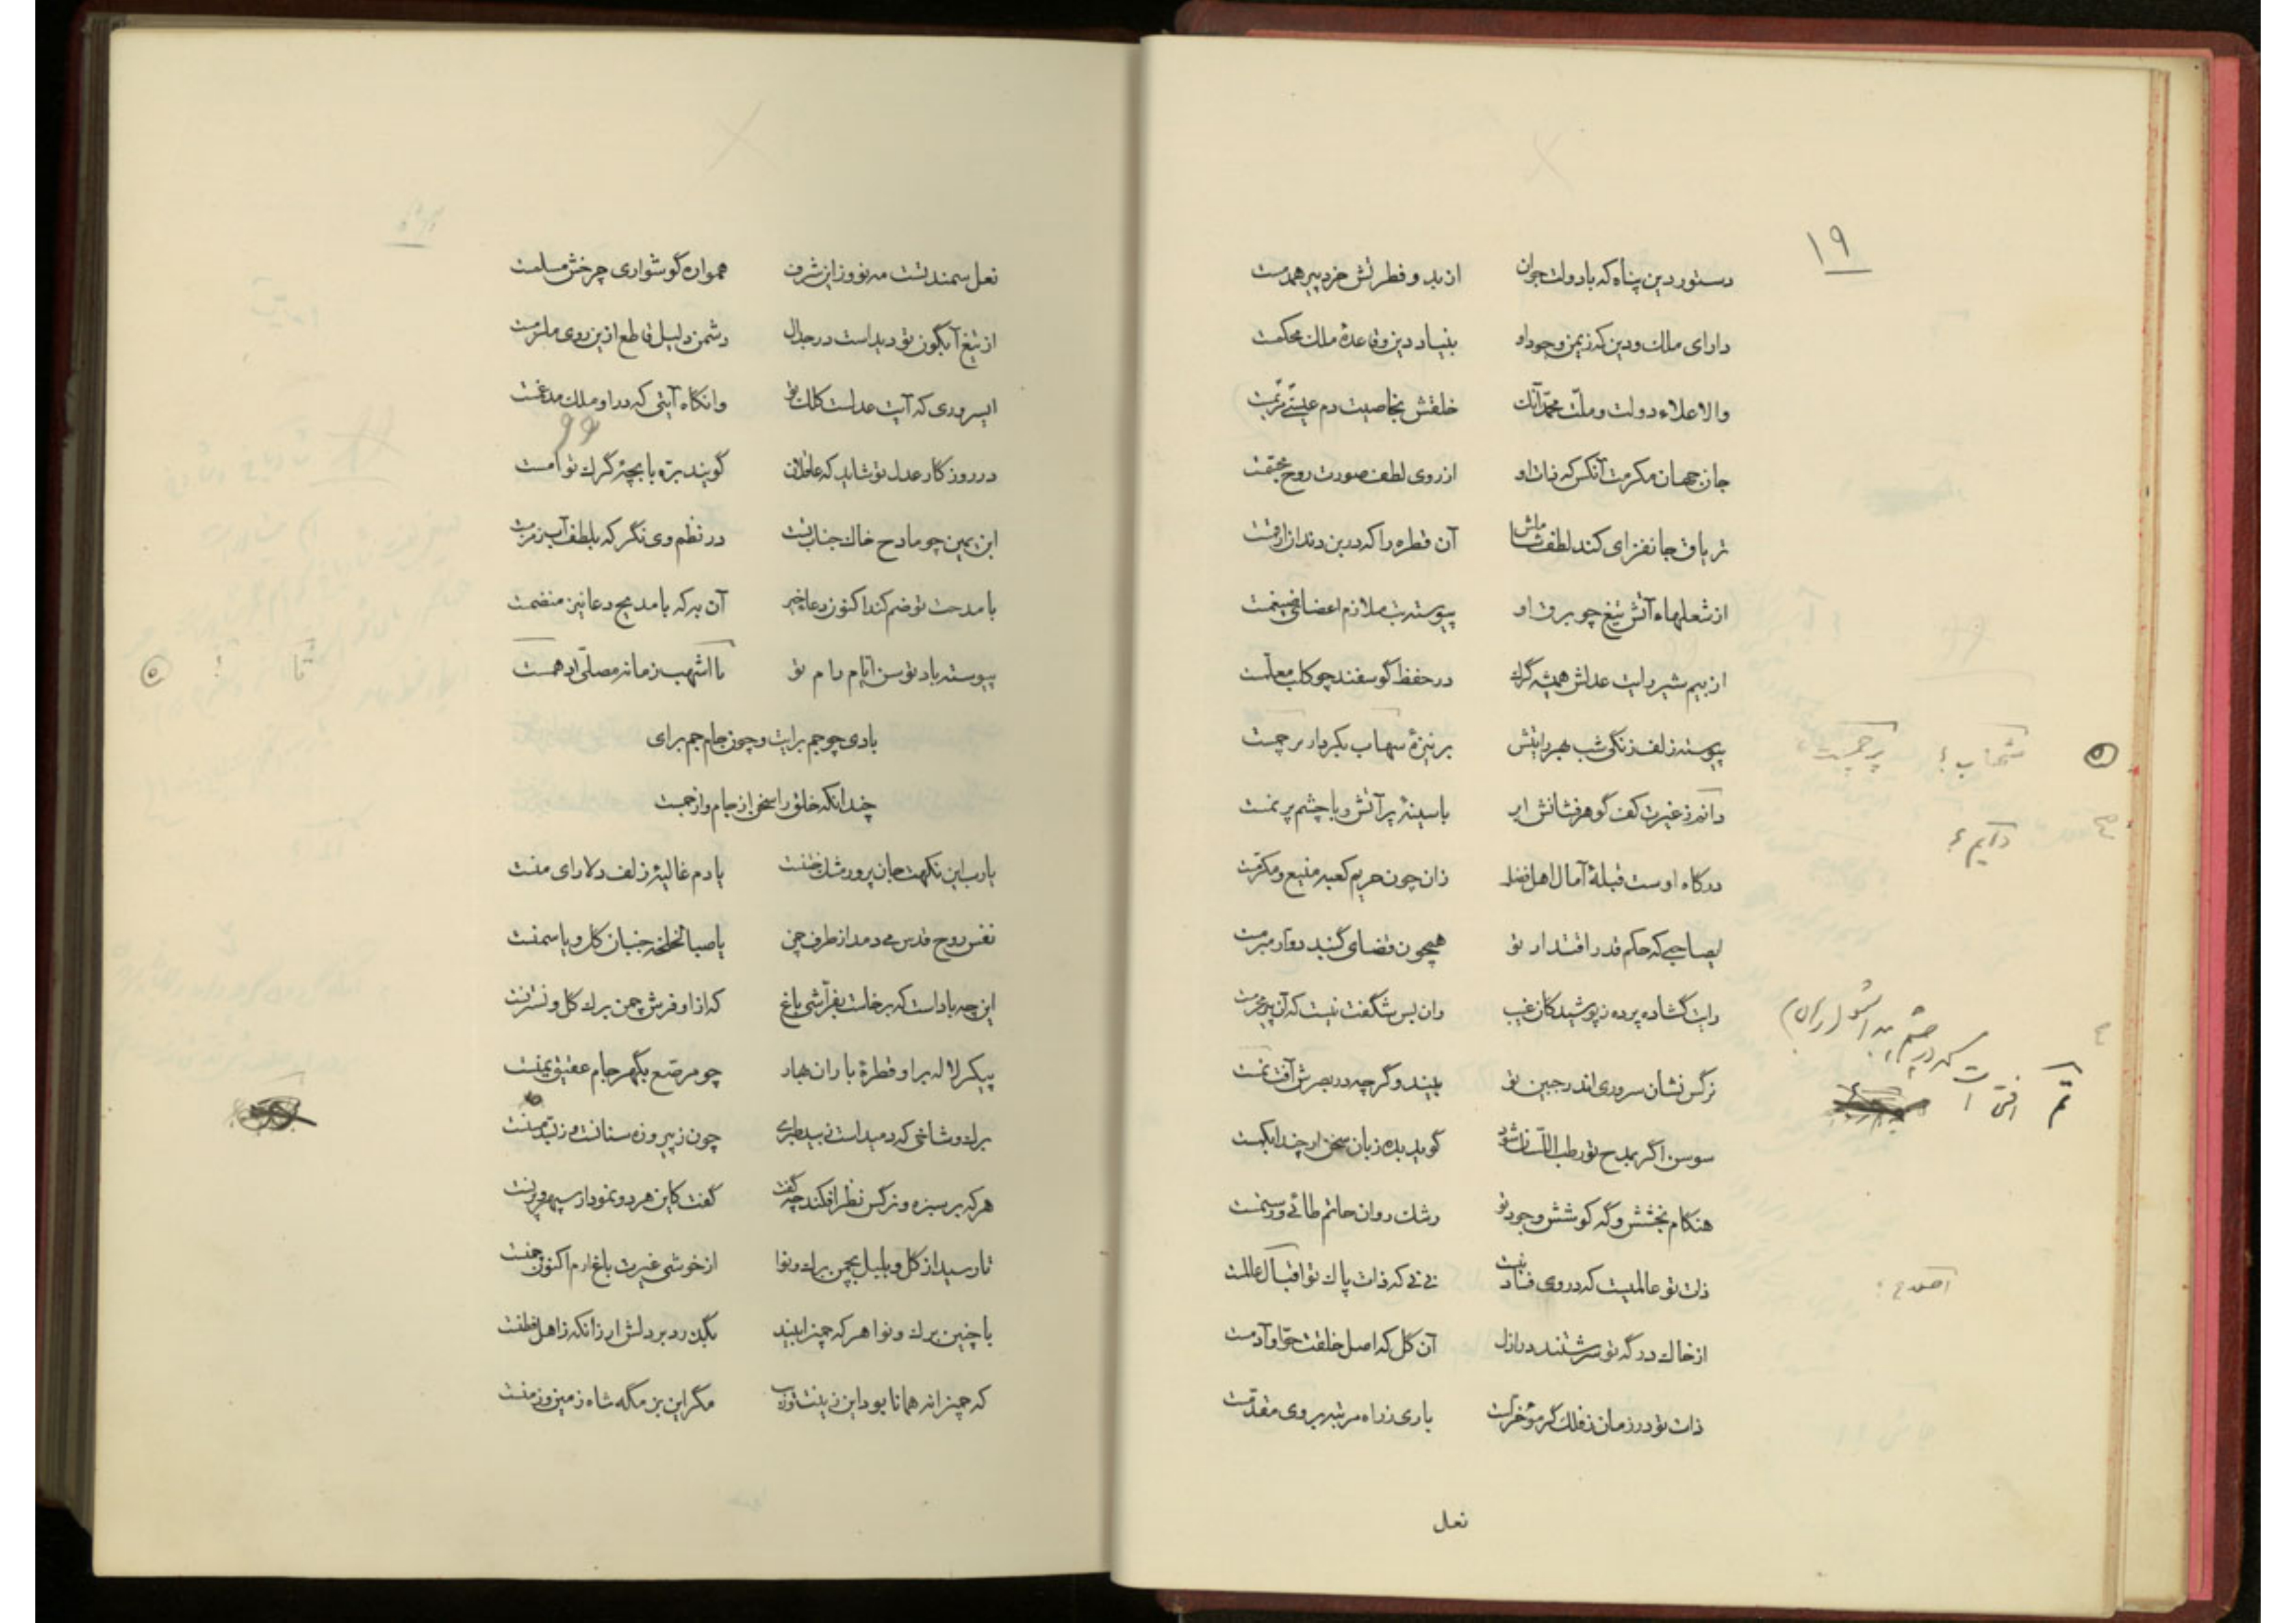 ۱۹
دستور دین پناه که با دولت جوان از بدو فطرتش خرد پیر همدمست
دارای ملک و دین که ز یمن وجود او بنیاد دین و قاعدهٔ ملک محکمست
والا علاء دولت و ملّت محمّد آنک خلقش بخاصیت دم عیسیّ مریمست
جان جهان مکرمت آنکس که ذات او از روی لطف صورت روح مجسّمست
تریاق جانفزای کند لطف شاملش آن قطره را که در بن دندان ارقمست
از شعلهاء آتش تیغ چو برق او پیوسته تب ملازم اعضای ضیغمست
از بیم شیر رایت عدلش همیشه گرگ در حفظ گوسفند چو کلب معلّمست
پیوسته زلف زنگی شب بهر رایتش بر نیزهٔ سهاب بکردار برچمست
دانم ز غیرت کف گوهرفشانش ابر با سینهٔ پر آتش و با چشم پر نمست
شهاب؟ پرچمست
دایم؟
درگاه اوست قبلهٔ آمال اهل فضل زان چون حریم کعبه منیع و مکرّمست
ایصاحبی که حکم قدر اقتدار تو همچون قضای گنبد دوار مبرمست
رایت گشاده پرده ز پوشیدگان غیب وان بس شگفت نیست که آن پیر محرمست
نرگس نشان سروری اندر جبین تو بیند وگرچه در بصرش آفت نمست
سوسن اگر بمدح تو رطب اللّسان شود گوید بده زبان سخن ار چند ابکمست
هنگام بخشش و گه کوشش وجود تو رشک روان حاتم طائی و رستمست
ذات تو عالمیست که در وی فساد نیست نی نی که ذات پاک تو اقبال عالمست
از خاک درگه تو سرشتند در ازل آن گل که اصل خلقت حوّا و آدمست
ذات تو در زمان ز فلک گر مؤخرست باری ز راه مرتبه بر وی مقدّمست
نعل
نعل سمند تست مه نو وز این شرف همواره گوشواری چرخش مسلمست
از تیغ آبگون تو دیداست در جدال دشمن دلیل قاطع ازین روی ملزمست
ایسروری که آیت عدلست کلک تو وانگاه آیتی که در او ملک مدغمست
در روزگار عدل تو شاید که عاقلان گویند برّه با بچهٔ گرگ توأمست
ابن یمین چو مادح خاک جناب تست در نظم وی نگر که بلطف آب زمزمست
با مدحت تو ضم کند اکنون دعاء خیر آن به که با مدیح دعا نیز منضمست
پیوسته باد توسن ایّام رام تو تا اشهب زمانه مصلّی ادهمست
بادی چو جم برایت و چون جام جم برای
چندانکه خلق را سخن از جام و از جمست
یارب این نکهت جان پرور مشک ختنست یا دم غالیهٔ زلف دلارای منست
نفس روح قدس می دمد از طرف چمن یا صبا لخلخه جنبان گل و یاسمنست
این چه باد است که برخاست بفرّاشی باغ که از او فرش چمن برگ گل و نسترنست
پیکر لاله بر او قطرهٔ باران بهار چو مرصّع بگهر جام عقیق یمنست
هر که بر سبزه و نرگس نظر افکند چه گفت گفت کاین هر دو نمودار سپهر و پرنست
تا رسید از گل و بلبل بچمن برگ و نوا از خوشی غیرت باغ ارم اکنون چمنست
با چنین برگ و نوا هر که چمن را بیند بگذرد بر دلش ار زانکه ز اهل فطنست
که چمن را نه همانا بود این زینت و زیب مگر این بزمگه شاه زمین و زمنست